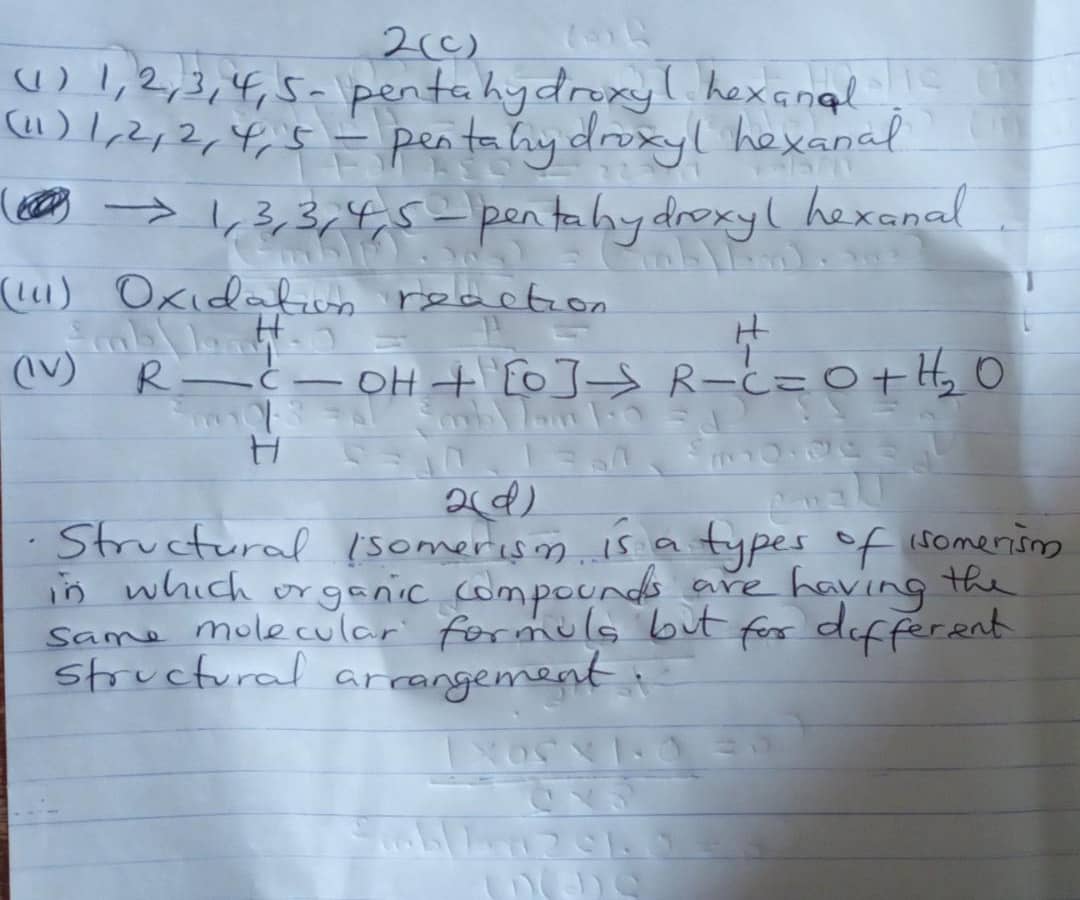 2(c)
(i) 1,2,3,4,5- pentahydroxyl hexanal.
(ii) 1,2,2,4,5 - pentahydroxyl hexanal
→ 1,3,3,4,5 - pentahydroxyl hexanal.
(iii) Oxidation reaction
H H
(iv) R — C — OH + [O] → R - C = O + H₂O
H
2(d)
· Structural isomerism is a types of isomerism
in which organic compounds are having the
same molecular formula but for different
structural arrangement.